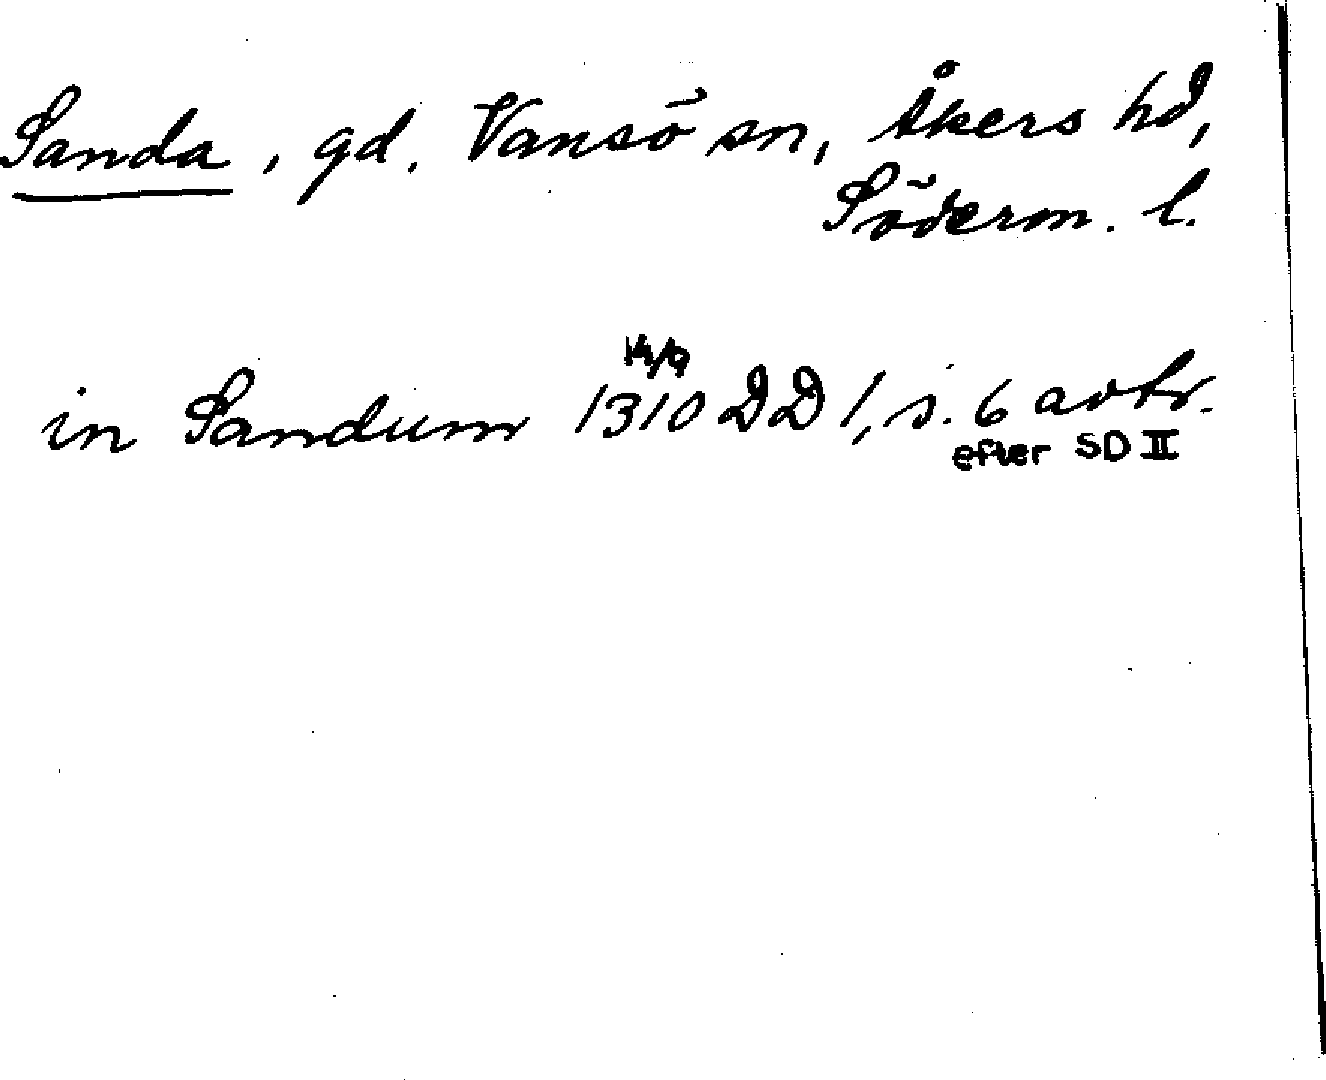 Sanda, gd. Vansö sn, Åkers hd,
Söderm. l.
14/9
in Sandum 1310 DD 1, s. 6 avtr.
efter SD II